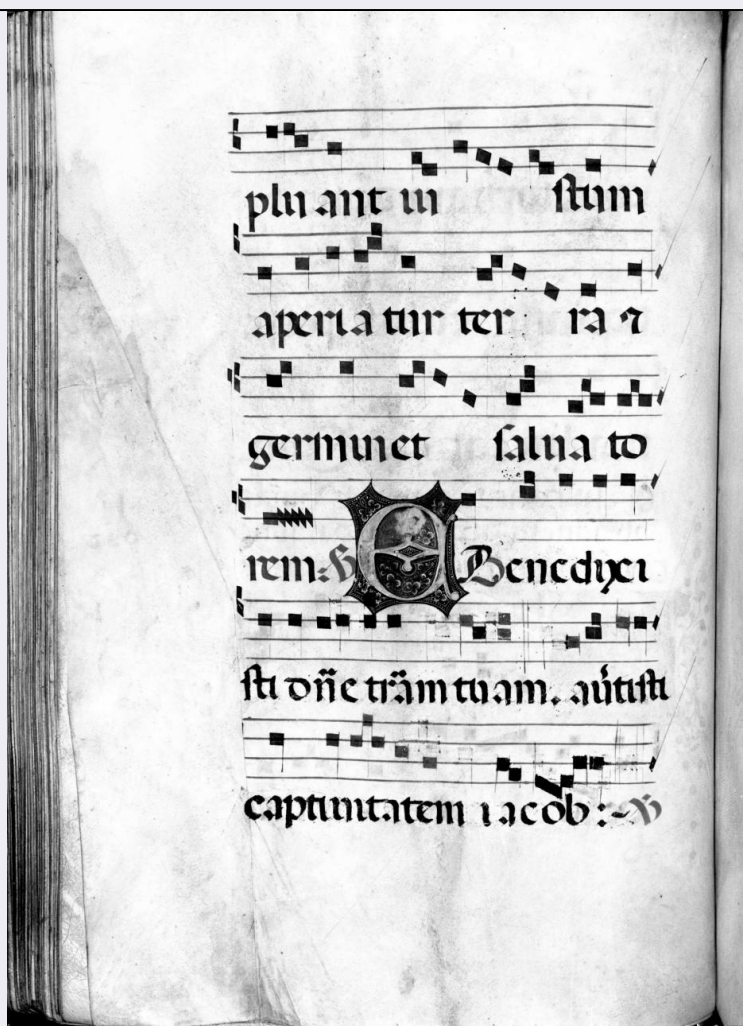 pluant iustum
aperiatur terra ⁊
germinet saluato
rem: ℣ Benedixi
sti dn̄e tr̄am tuam. au̓tisti
captiuitatem iacob :~ ℣